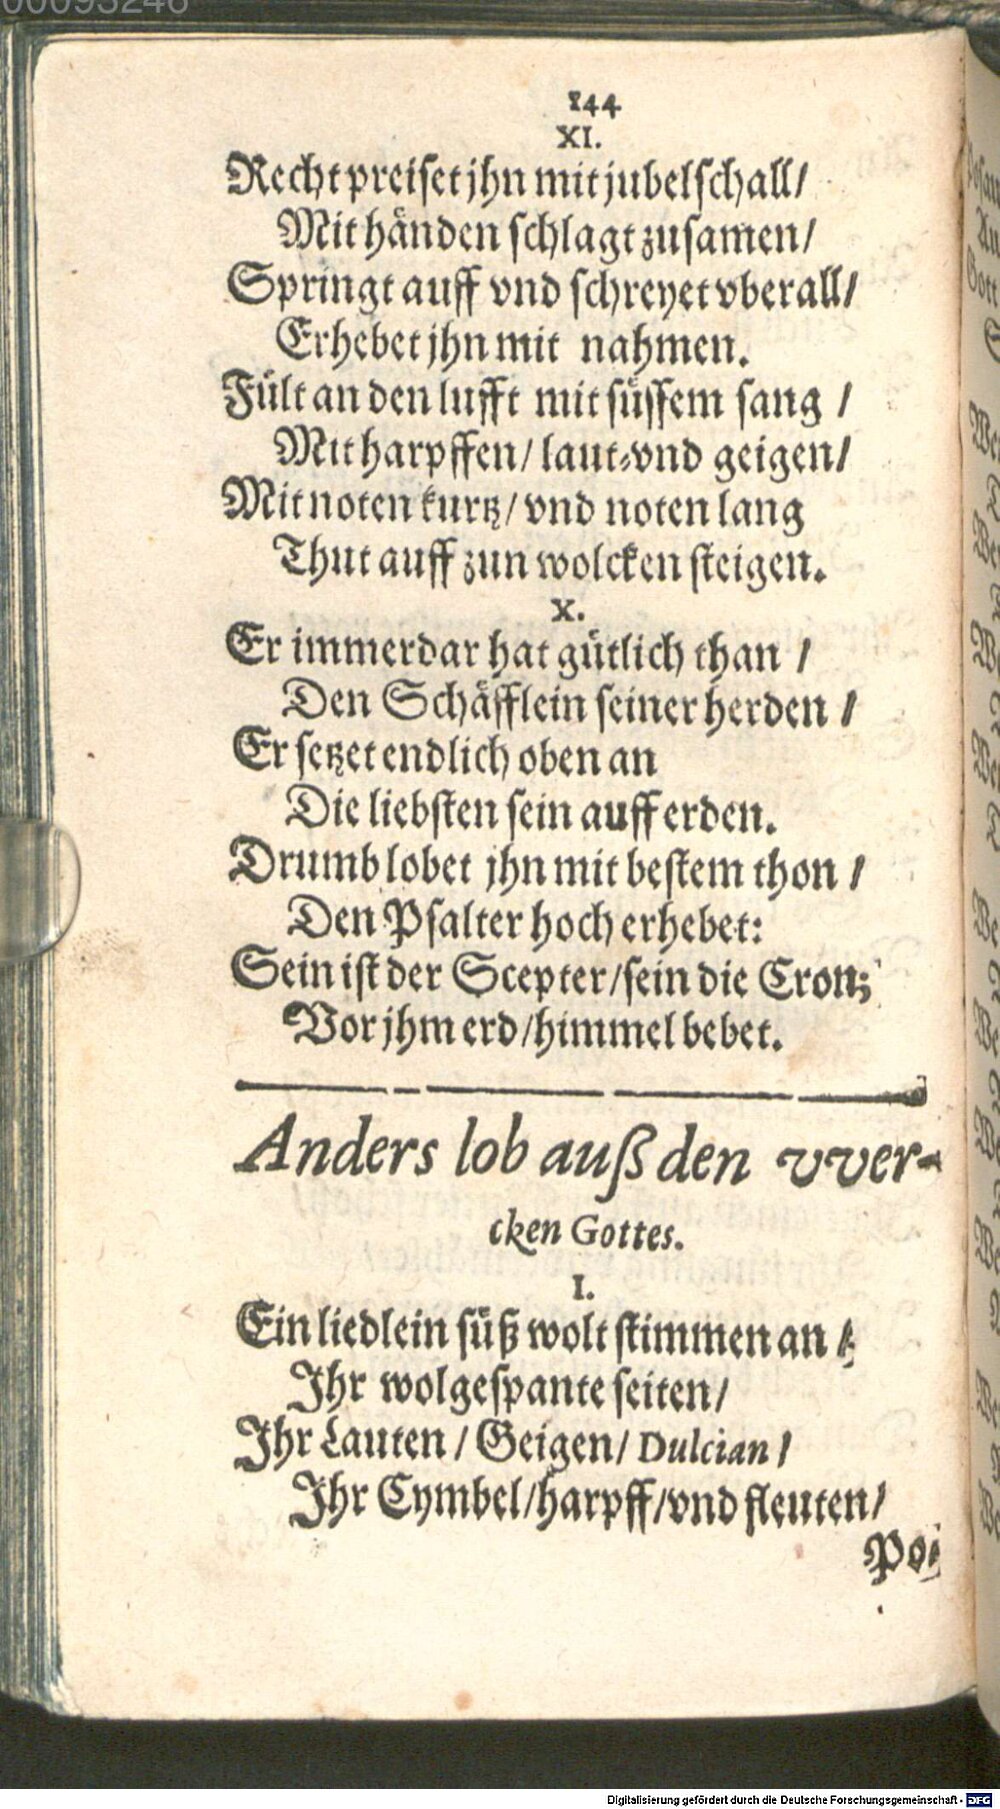 00093246
144
XI.
Recht preiset jhn mit jubelschall/
Mit händen schlagt zusamen/
Springt auff vnd schreyet vberall/
Erhebet jhn mit nahmen.
Fült an den lufft mit süssem sang /
Mit harpffen/ laut-vnd geigen/
Mit noten kurtz/ vnd noten lang
Thut auff zun wolcken steigen.
X.
Er immerdar hat gütlich than /
Den Schäfflein seiner herden /
Er setzet endlich oben an
Die liebsten sein auff erden.
Drumb lobet jhn mit bestem thon /
Den Psalter hoch erhebet:
Sein ist der Scepter/sein die Cron;
Vor jhm erd/himmel bebet.
Anders lob auß den vver-
cken Gottes.
I.
Ein liedlein süß wolt stimmen an /
Jhr wolgespante seiten/
Jhr Lauten / Geigen/ Dulcian /
Jhr Cymbel/harpff/vnd fleuten/
Po
Digitalisierung gefördert durch die Deutsche Forschungsgemeinschaft - DFG